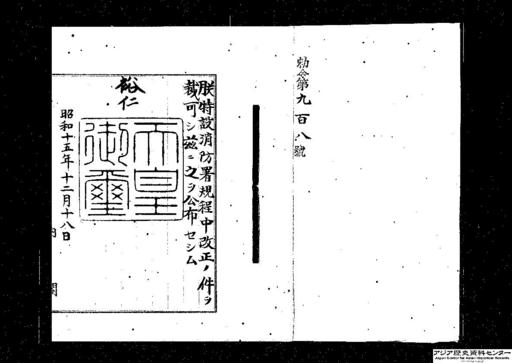 勅令第九百八號
朕特設消防署規程中改正ノ件ヲ
裁可シ茲ニ之ヲ公布セシム
裕仁
天皇
御璽
昭和十五年十二月十八日
内
閣
アジア歴史資料センター
Japan Center for Asian Historical Records